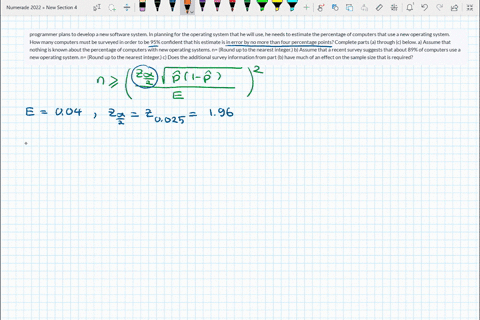 Numerade 2022 > New Section 4
programmer plans to develop a new software system. In planning for the operating system that he will use, he needs to estimate the percentage of computers that use a new operating system.
How many computers must be surveyed in order to be 95% confident that his estimate is in error by no more than four percentage points? Complete parts (a) through (c) below. a) Assume that
nothing is known about the percentage of computers with new operating systems. n= (Round up to the nearest integer.) b) Assume that a recent survey suggests that about 89% of computers use a
new operating system. n= (Round up to the nearest integer.) c) Does the additional survey information from part (b) have much of an effect on the sample size that is required?
n ≥ ( z_{α/2} √p̂(1-p̂) / E )²
E = 0.04 , z_{α/2} = z_{0.025} = 1.96